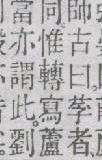 師古曰莩者
同惟轉寫蘆
當亦謂此。劉